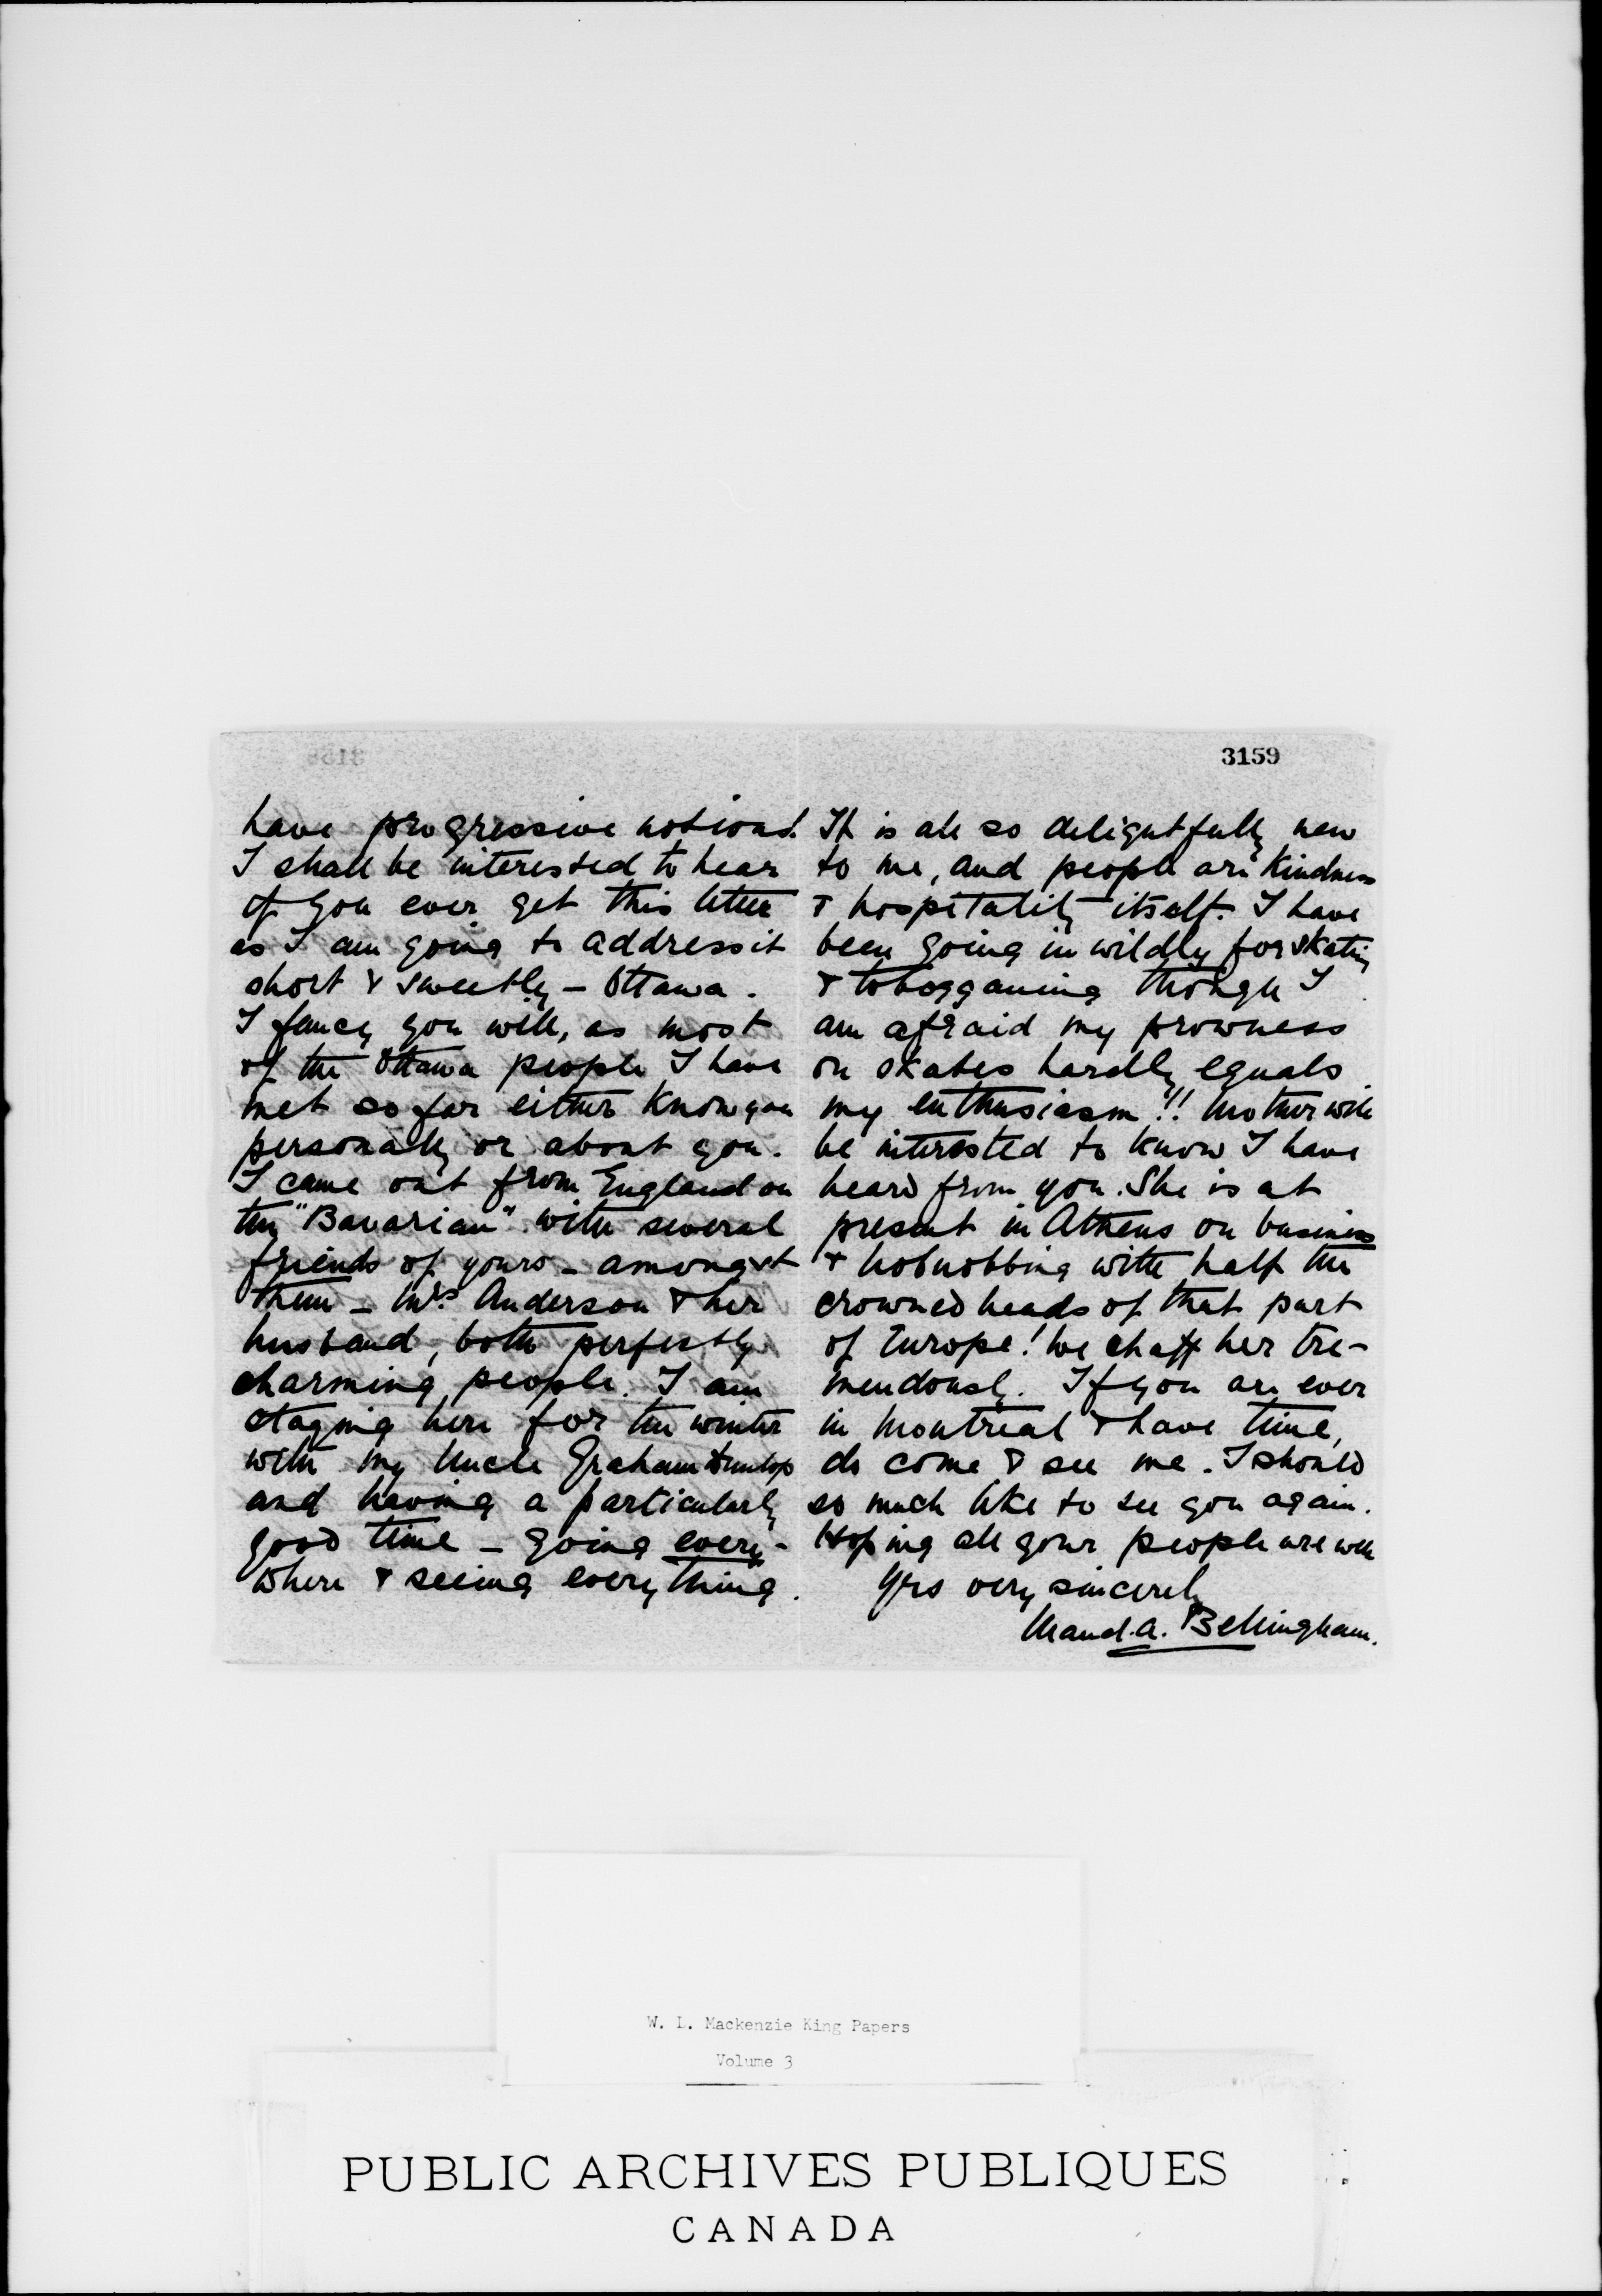 3159
have progressive notions!
I shall be interested to hear
if you ever get this letter
as I am going to address it
short & sweetly – Ottawa.
I fancy you will, as most
of the Ottawa people I have
met so far either know you
personally or about you.
I came out from England on
the "Bavarian" with several
friends of yours – amongst
them – Mrs. Anderson & her
husband, both perfectly
charming people. I am
staying here for the winter
with my Uncle Graham Dunlop
and having a particularly
good time – going every-
where & seeing everything.
It is all so delightfully new
to me, and people are kindness
& hospitality itself. I have
been going in wildly for skating
& tobogganing though I
am afraid my prowness
on skates hardly equals
my enthusiasm!! Mother will
be interested to know I have
heard from you. She is at
present in Athens on business
& hobnobbing with half the
crowned heads of that part
of Europe! We chaff her tre-
mendously. If you are ever
in Montreal & have time,
do come & see me. I should
so much like to see you again.
Hoping all your people are well
Yrs very sincerely
Maud. A. Bellingham.
W. L. Mackenzie King Papers
Volume 3
PUBLIC ARCHIVES PUBLIQUES
CANADA